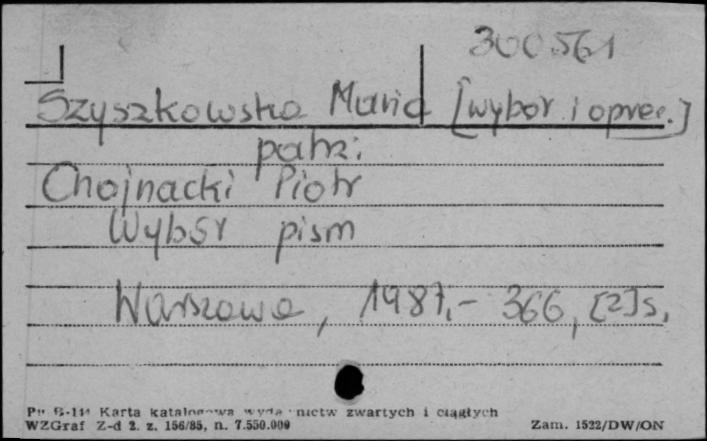 300561
Szyszkowska Maria [wybór i oprac.]
patrz:
Chojnacki Piotr
Wybór pism
Warszawa, 1987.- 366, [2] s.
Pu G-114 Karta katalogowa wydawnictw zwartych i ciągłych
WZGraf Z-d 2. z. 156/85, n. 7.550.000 Zam. 1522/DW/ON